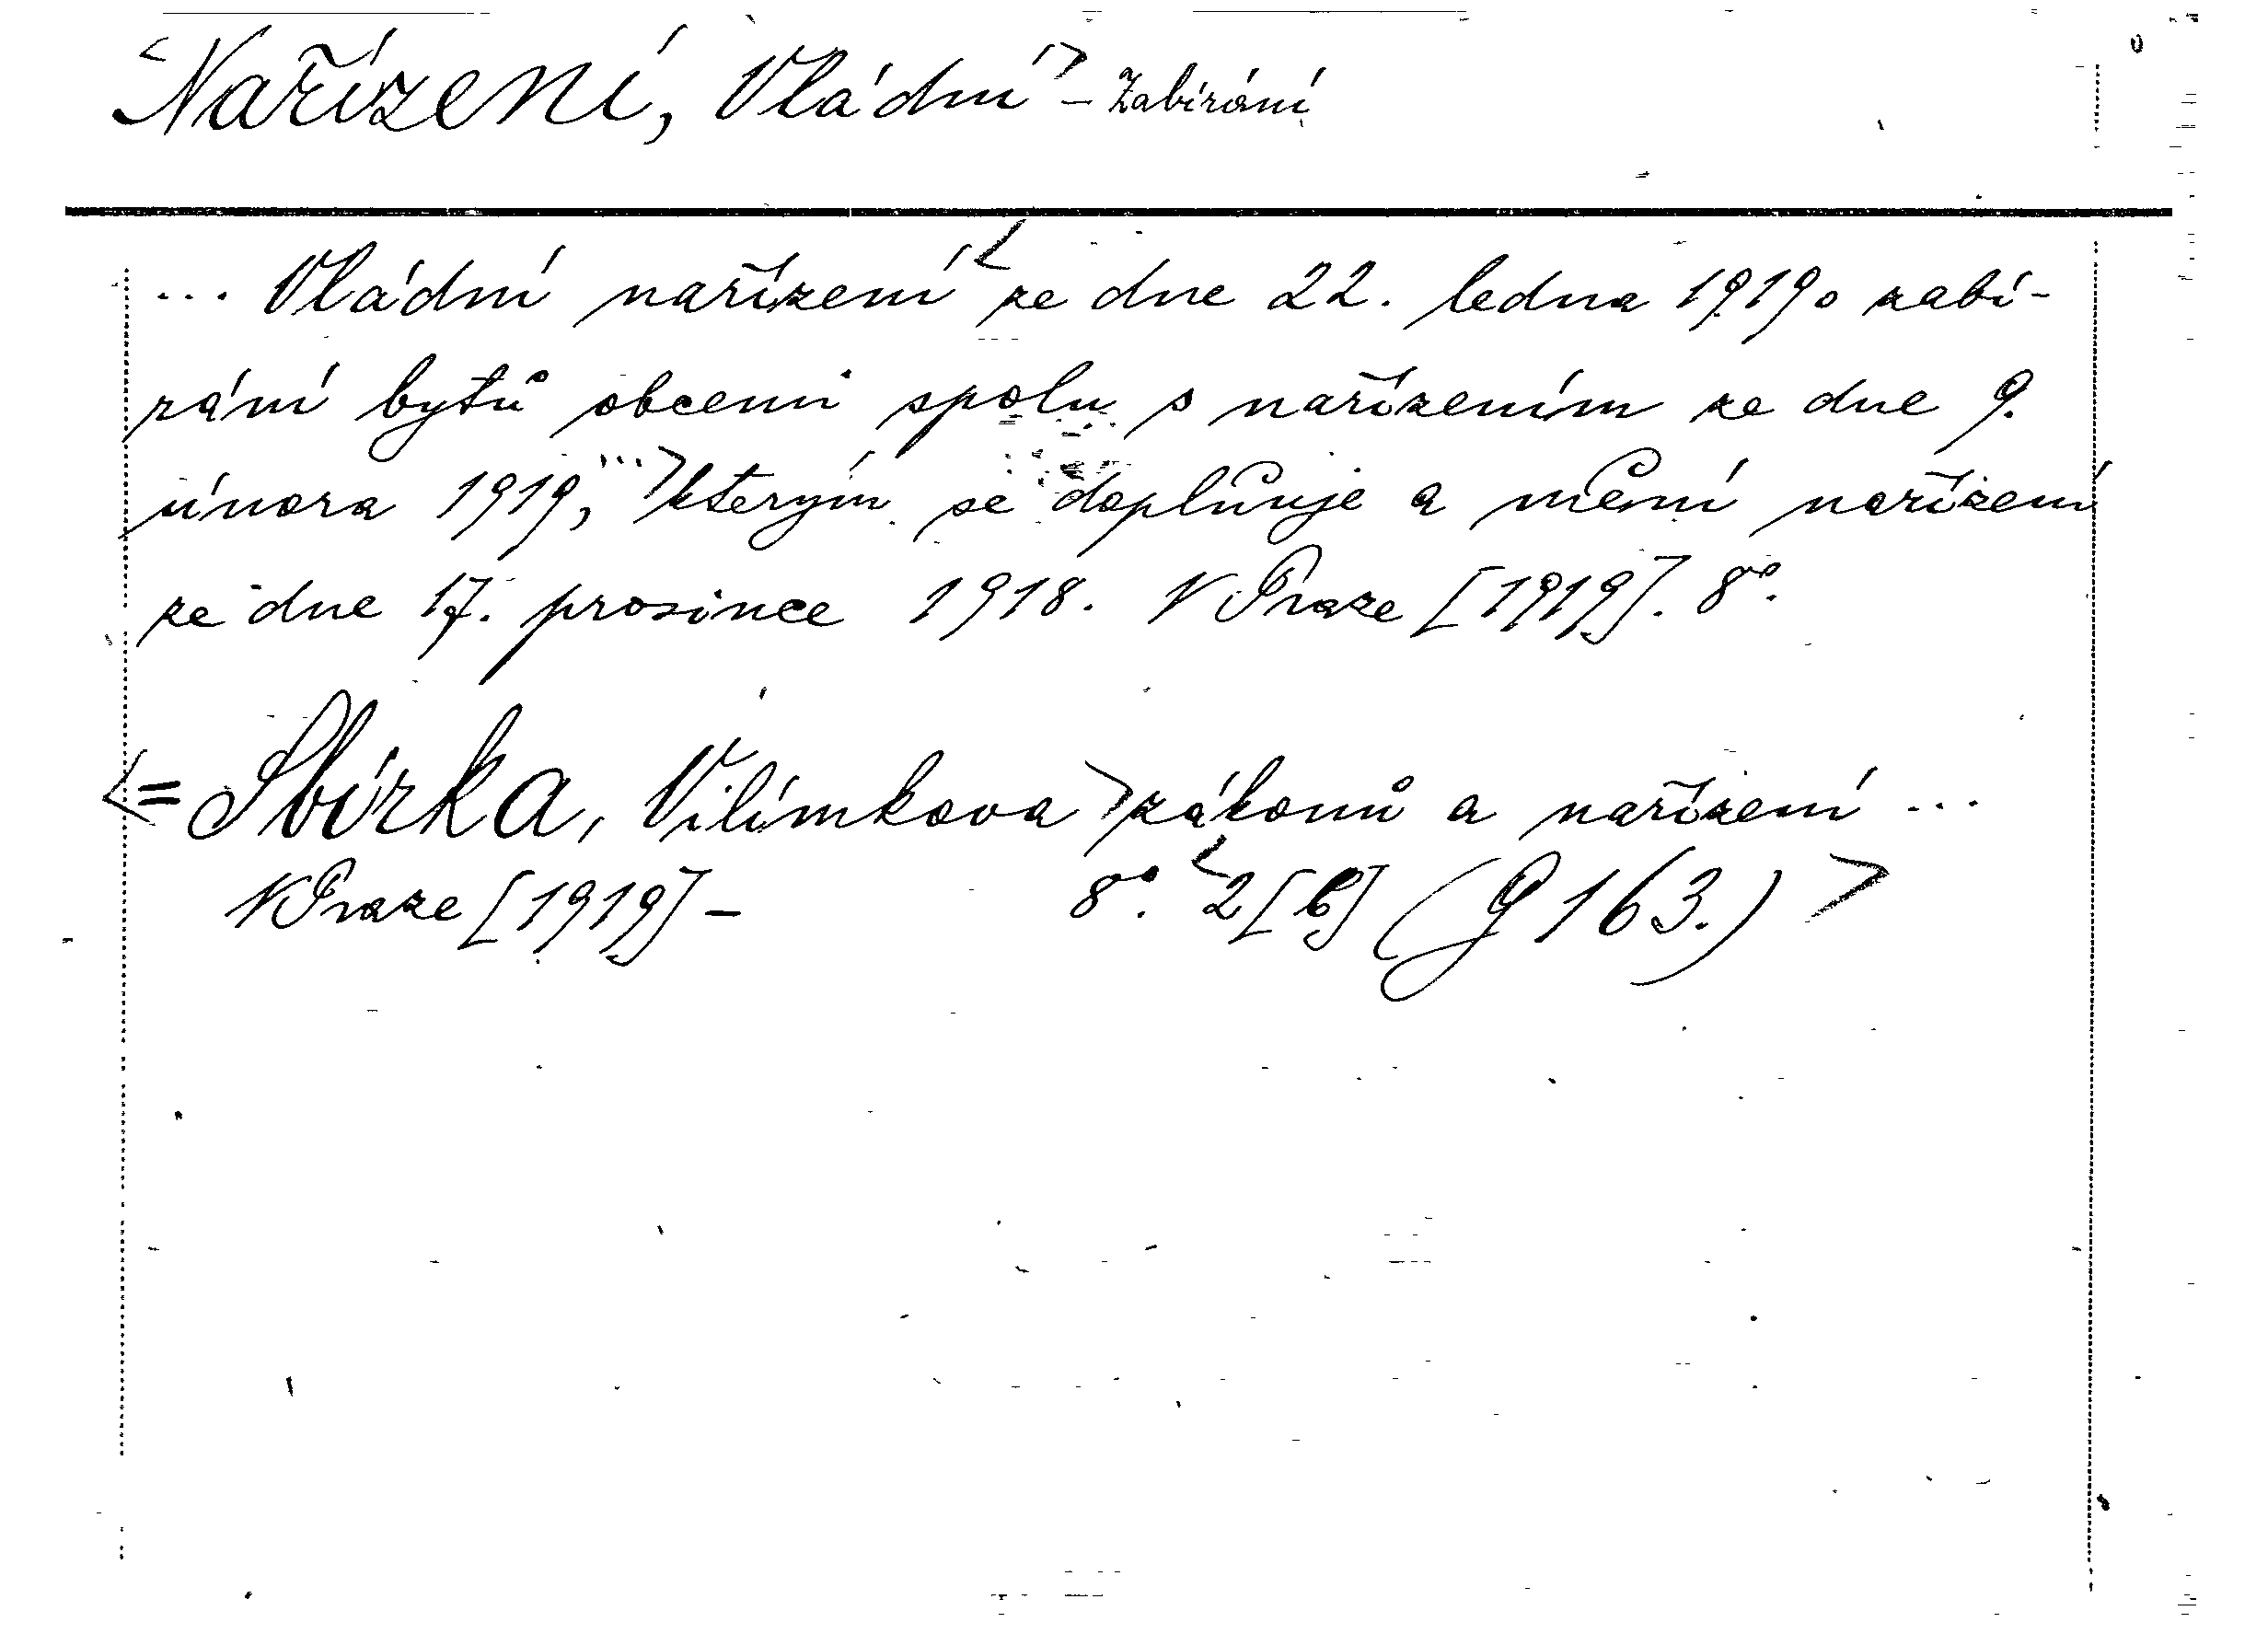 <Nařízení, Vládní> – Zabírání
... Vládní nařízení < ze dne 22. ledna 1919 o zabí-
rání bytů obcemi spolu s nařízením ze dne 9.
února 1919, ...> kterým se doplňuje a mění nařízení
ze dne 17. prosince 1918. V Praze [1919]. 8°.
<= Sbírka, Vilímkova > zákonů a nařízení ...
V Praze [1919] – 8°. < 2 [6] (G 163.) >